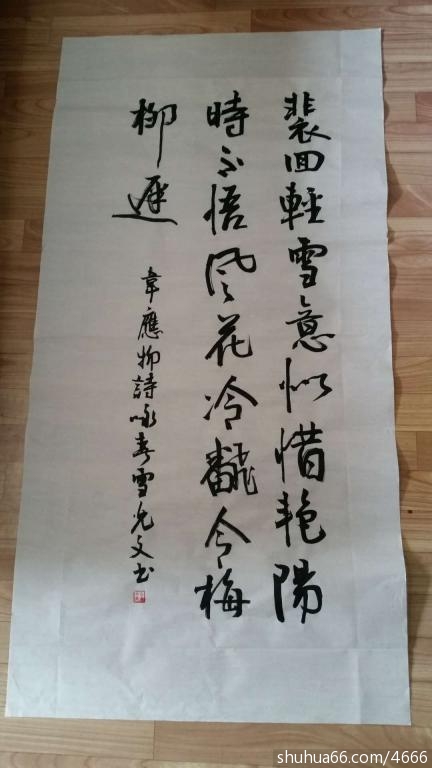 裴回輕雪意似惜艳陽
時不悟風花冷飜令梅
柳遲
韋應物詩咏春雪允文书
shuhua66.com/4666